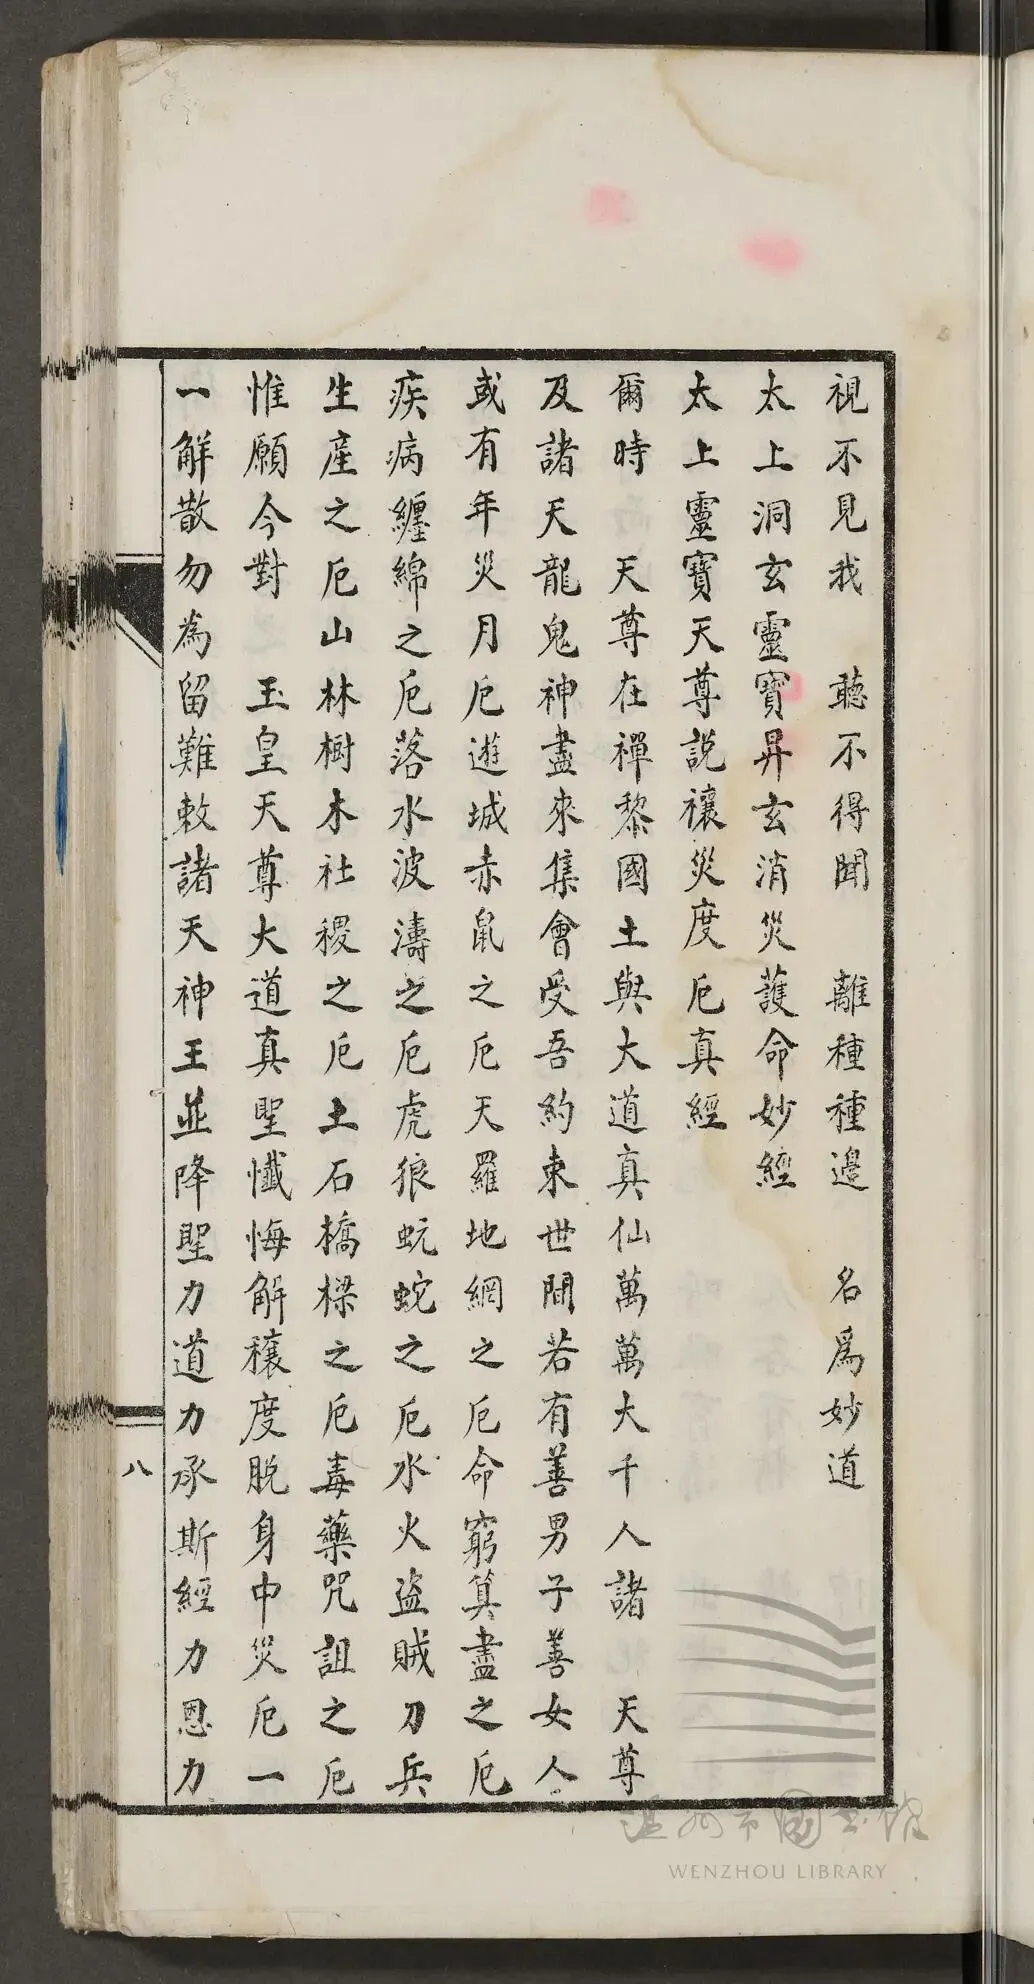 視不見我　聽不得聞　離種種邊　名爲妙道
太上洞玄靈寶昇玄消災護命妙經
太上靈寶天尊説禳災度厄真經
爾時　天尊在禪黎國土與大道真仙萬萬大千人諸　天尊
及諸天龍鬼神盡來集會受吾約束世間若有善男子善女人
或有年災月厄遊城赤鼠之厄天羅地網之厄命窮算盡之厄
疾病纏綿之厄落水波濤之厄虎狼蚖蛇之厄水火盜賊刀兵
生産之厄山林樹木社稷之厄土石橋樑之厄毒藥咒詛之厄
惟願今對　玉皇天尊大道真聖懺悔解穰度脱身中災厄一
一解散勿為留難敕諸天神王並降聖力道力承斯經力恩力
八
温州市圖書館
WENZHOU LIBRARY